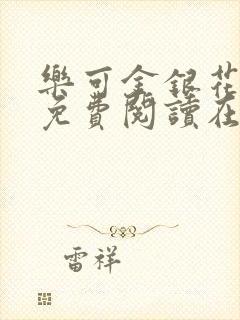 樂可金銀花
免費閱讀在
雷祥